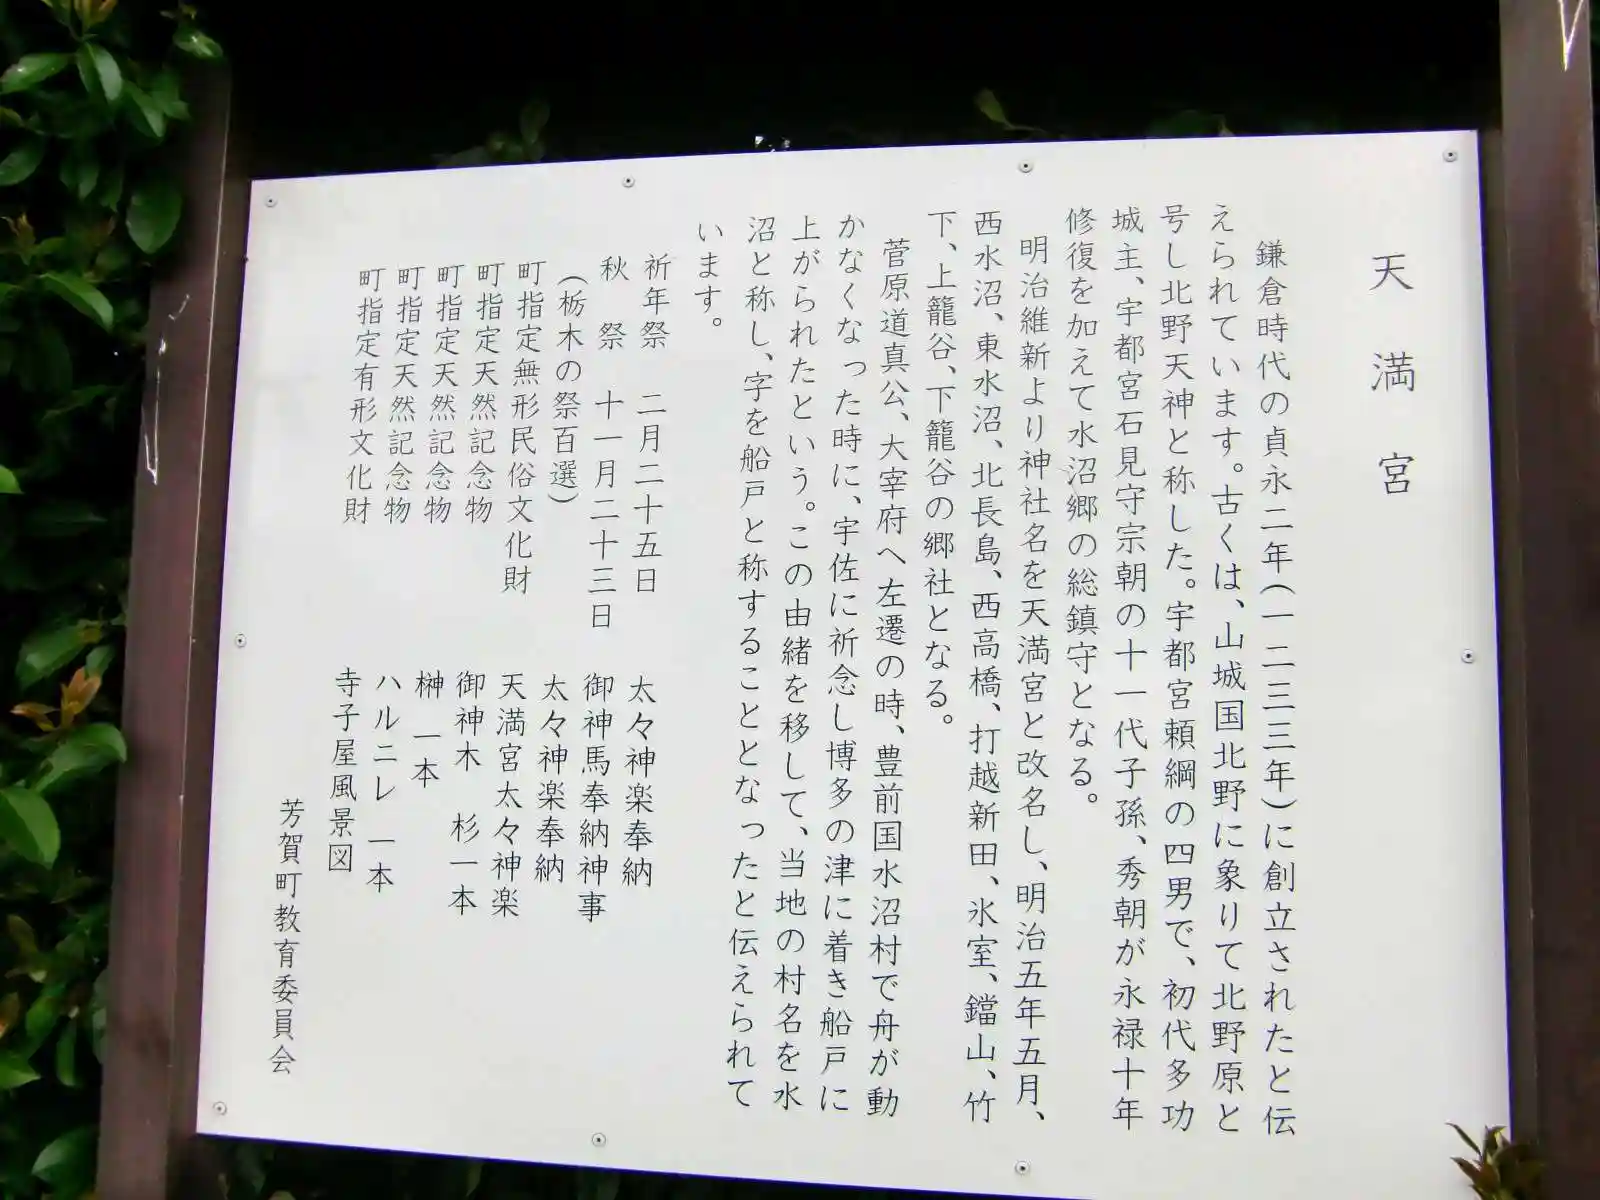 天満宮
鎌倉時代の貞永二年(一二三三年)に創立されたと伝
えられています。古くは、山城国北野に象りて北野原と
号し北野天神と称した。宇都宮頼綱の四男で、初代多功
城主、宇都宮石見守宗朝の十一代子孫、秀朝が永禄十年
修復を加えて水沼郷の総鎮守となる。
明治維新より神社名を天満宮と改名し、明治五年五月、
西水沼、東水沼、北長島、西高橋、打越新田、氷室、鐺山、竹
下、上籠谷、下籠谷の郷社となる。
菅原道真公、大宰府へ左遷の時、豊前国水沼村で舟が動
かなくなった時に、宇佐に祈念し博多の津に着き船戸に
上がられたという。この由緒を移して、当地の村名を水
沼と称し、字を船戸と称することとなったと伝えられて
います。
祈年祭 二月二十五日 太々神楽奉納
秋 祭 十一月二十三日 御神馬奉納神事
(栃木の祭百選) 太々神楽奉納
町指定無形民俗文化財 天満宮太々神楽
町指定天然記念物 御神木 杉一本
町指定天然記念物 榊 一本
町指定天然記念物 ハルニレ 一本
町指定有形文化財 寺子屋風景図
芳賀町教育委員会